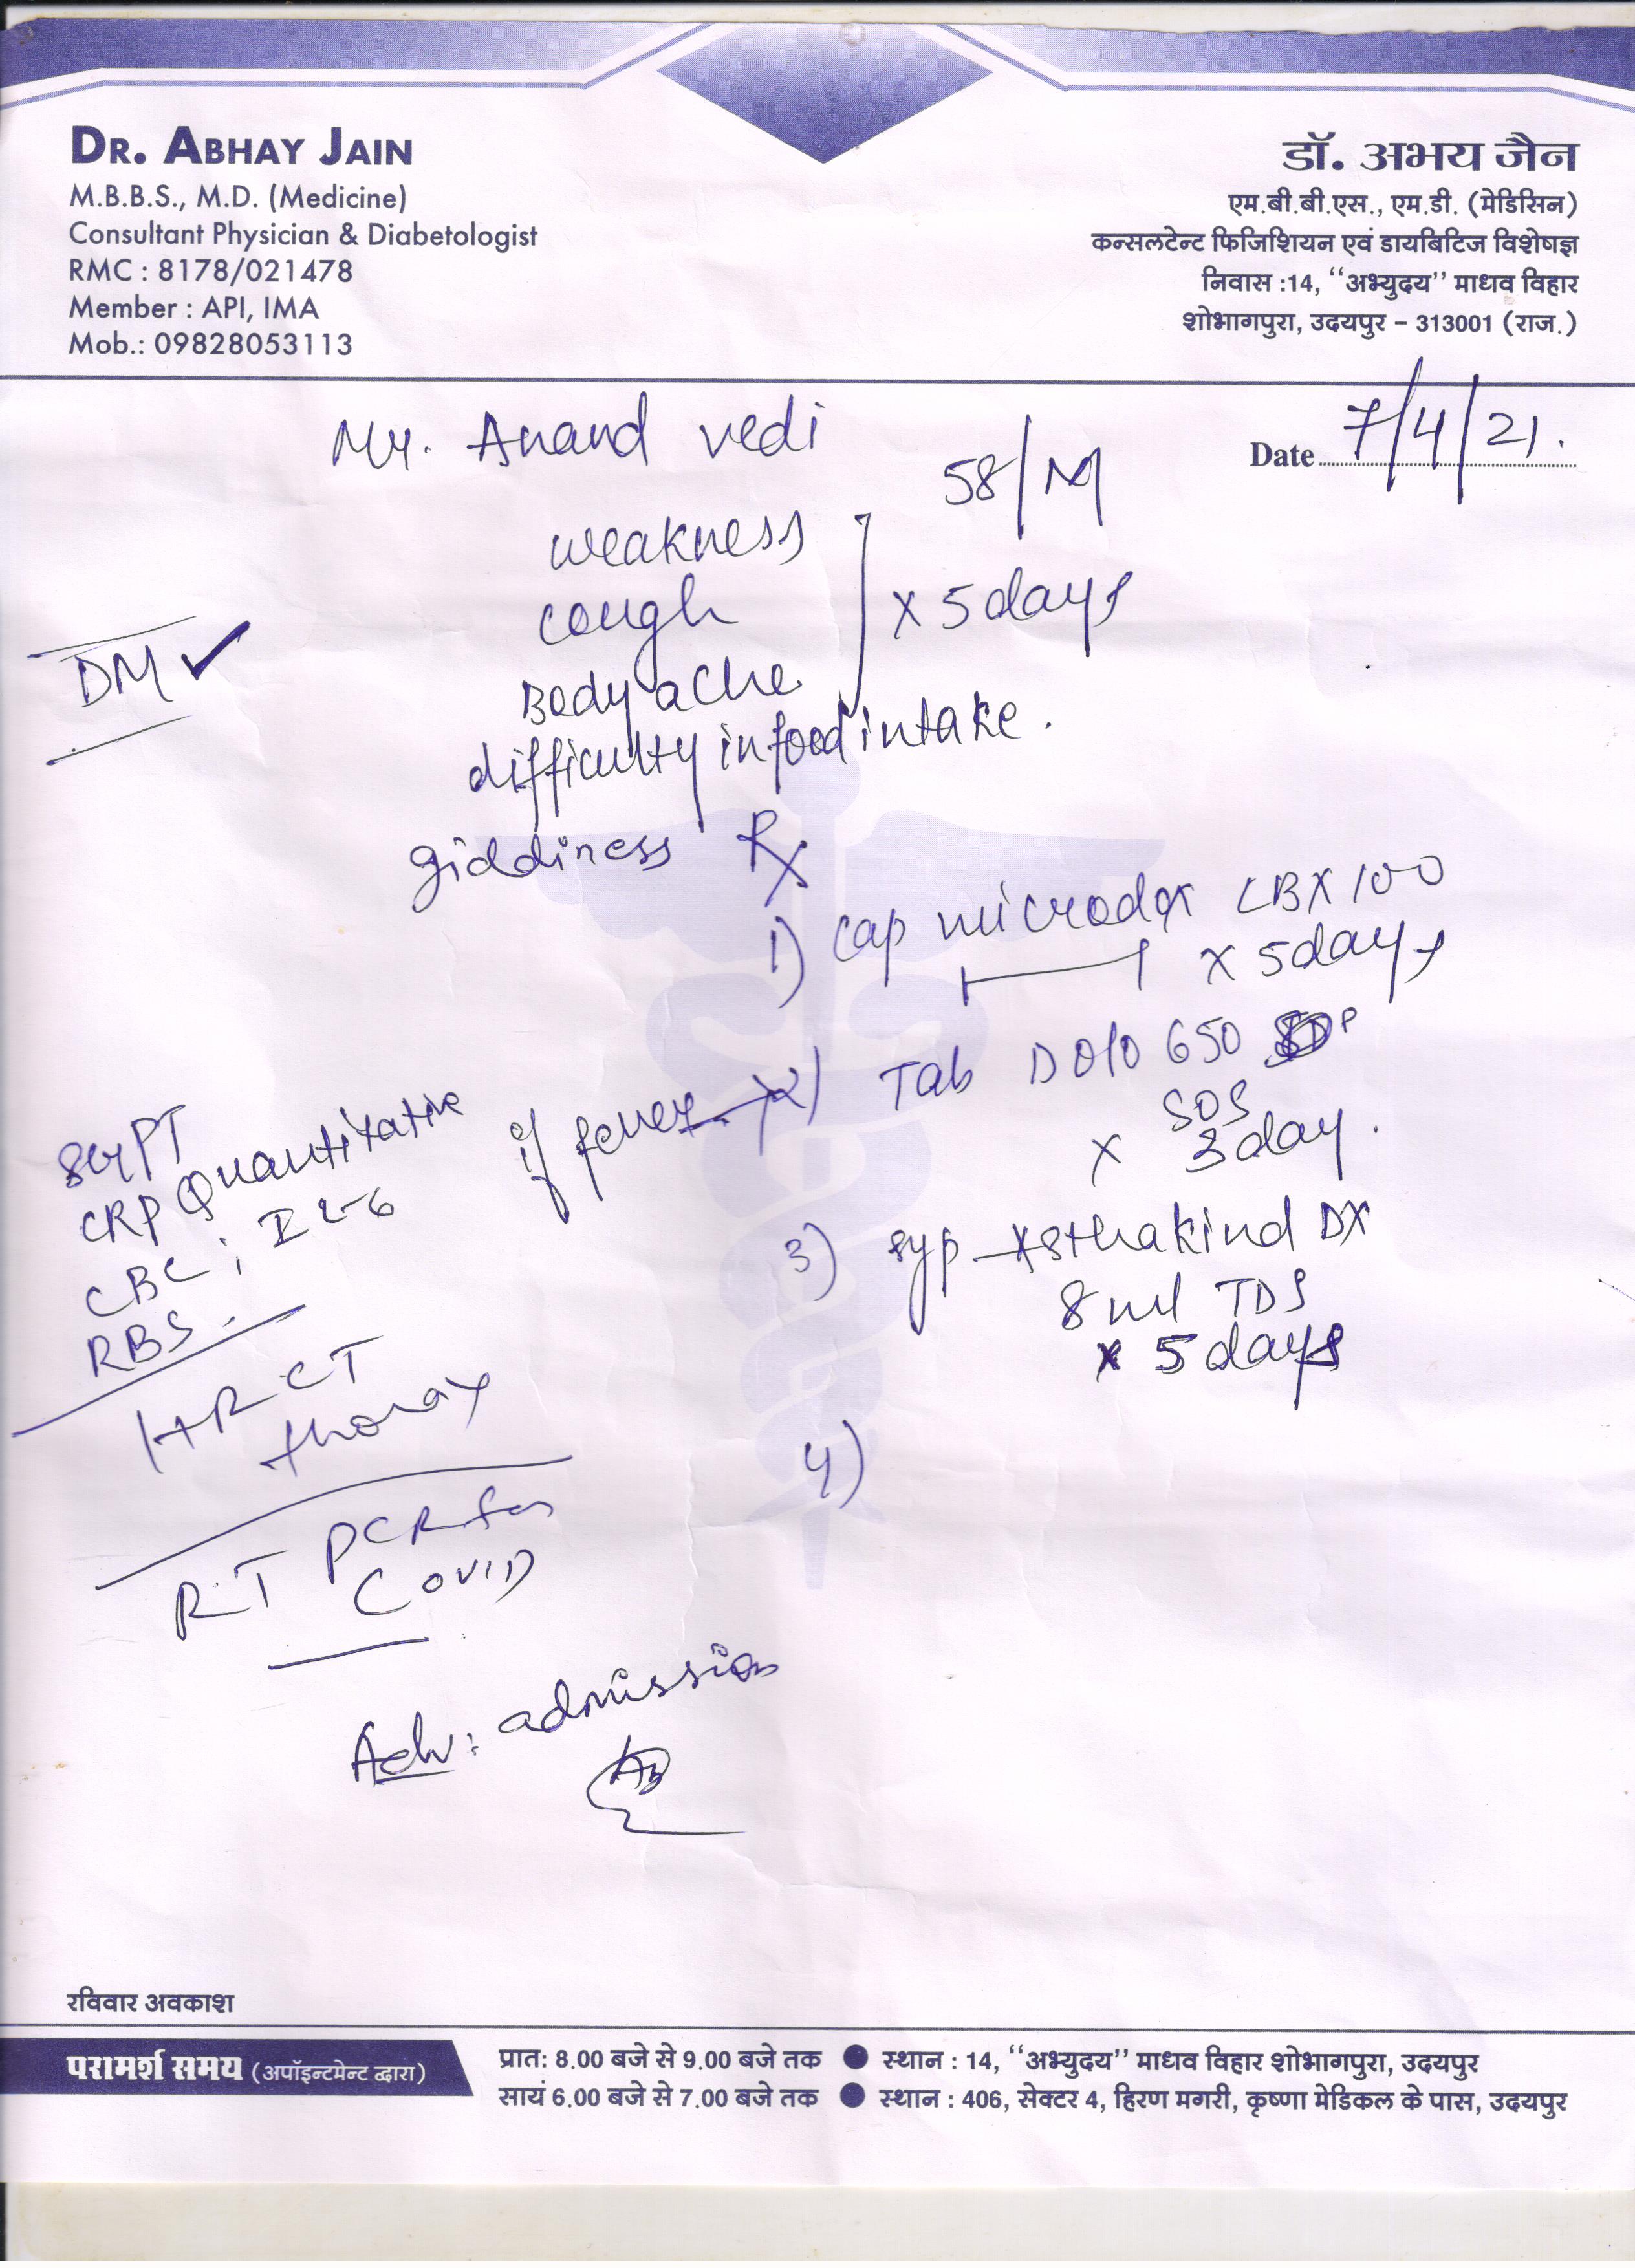 DR. ABHAY JAIN
M.B.B.S., M.D. (Medicine)
Consultant Physician & Diabetologist
RMC : 8178/021478
Member : API, IMA
Mob.: 09828053113
डॉ. अभय जैन
एम.बी.बी.एस., एम.डी. (मेडिसिन)
कन्सलटेन्ट फिजिशियन एवं डायबिटिज विशेषज्ञ
निवास :14, ‘‘अभ्युदय’’ माधव विहार
शोभागपुरा, उदयपुर – 313001 (राज.)
Date 7/4/21.
Mr. Anand vedi
58/M
weakness
cough
Body ache
x 5 days
DM ✓
difficulty in food intake.
giddiness Rx
1) cap microdox LBX 100
x 5 days
if fever → 2) Tab Dolo 650
SOS
x 3 day.
3) syp Asthakind DX
8 ml TDS
x 5 days
4)
SGPT
CRP Quantitative
CBC ; IL-6
RBS.
HRCT
thorax
RT PCR for
Covid
Adv: admission
रविवार अवकाश
परामर्श समय (अपॉइन्टमेन्ट द्वारा)
प्रातः 8.00 बजे से 9.00 बजे तक ● स्थान : 14, ‘‘अभ्युदय’’ माधव विहार शोभागपुरा, उदयपुर
सायं 6.00 बजे से 7.00 बजे तक ● स्थान : 406, सेक्टर 4, हिरण मगरी, कृष्णा मेडिकल के पास, उदयपुर